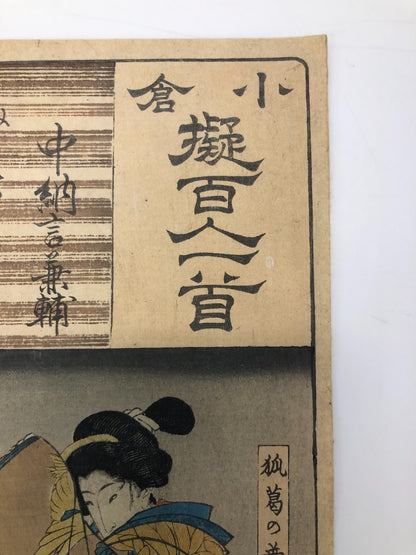 小倉
擬百人一首
中納言兼輔
狐葛の葉